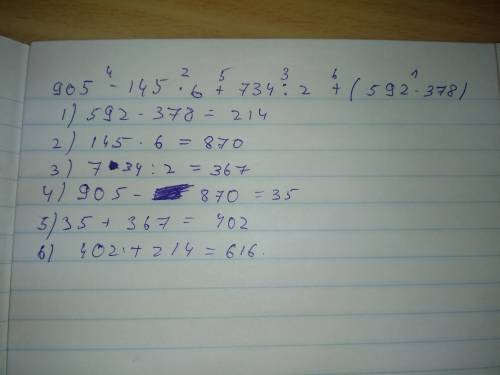 4 2 5 3 6 1
905 - 145 · 6 + 734 : 2 + (592 - 378)
1) 592 - 378 = 214
2) 145 · 6 = 870
3) 734 : 2 = 367
4) 905 - 870 = 35
5) 35 + 367 = 402
6) 402 + 214 = 616.